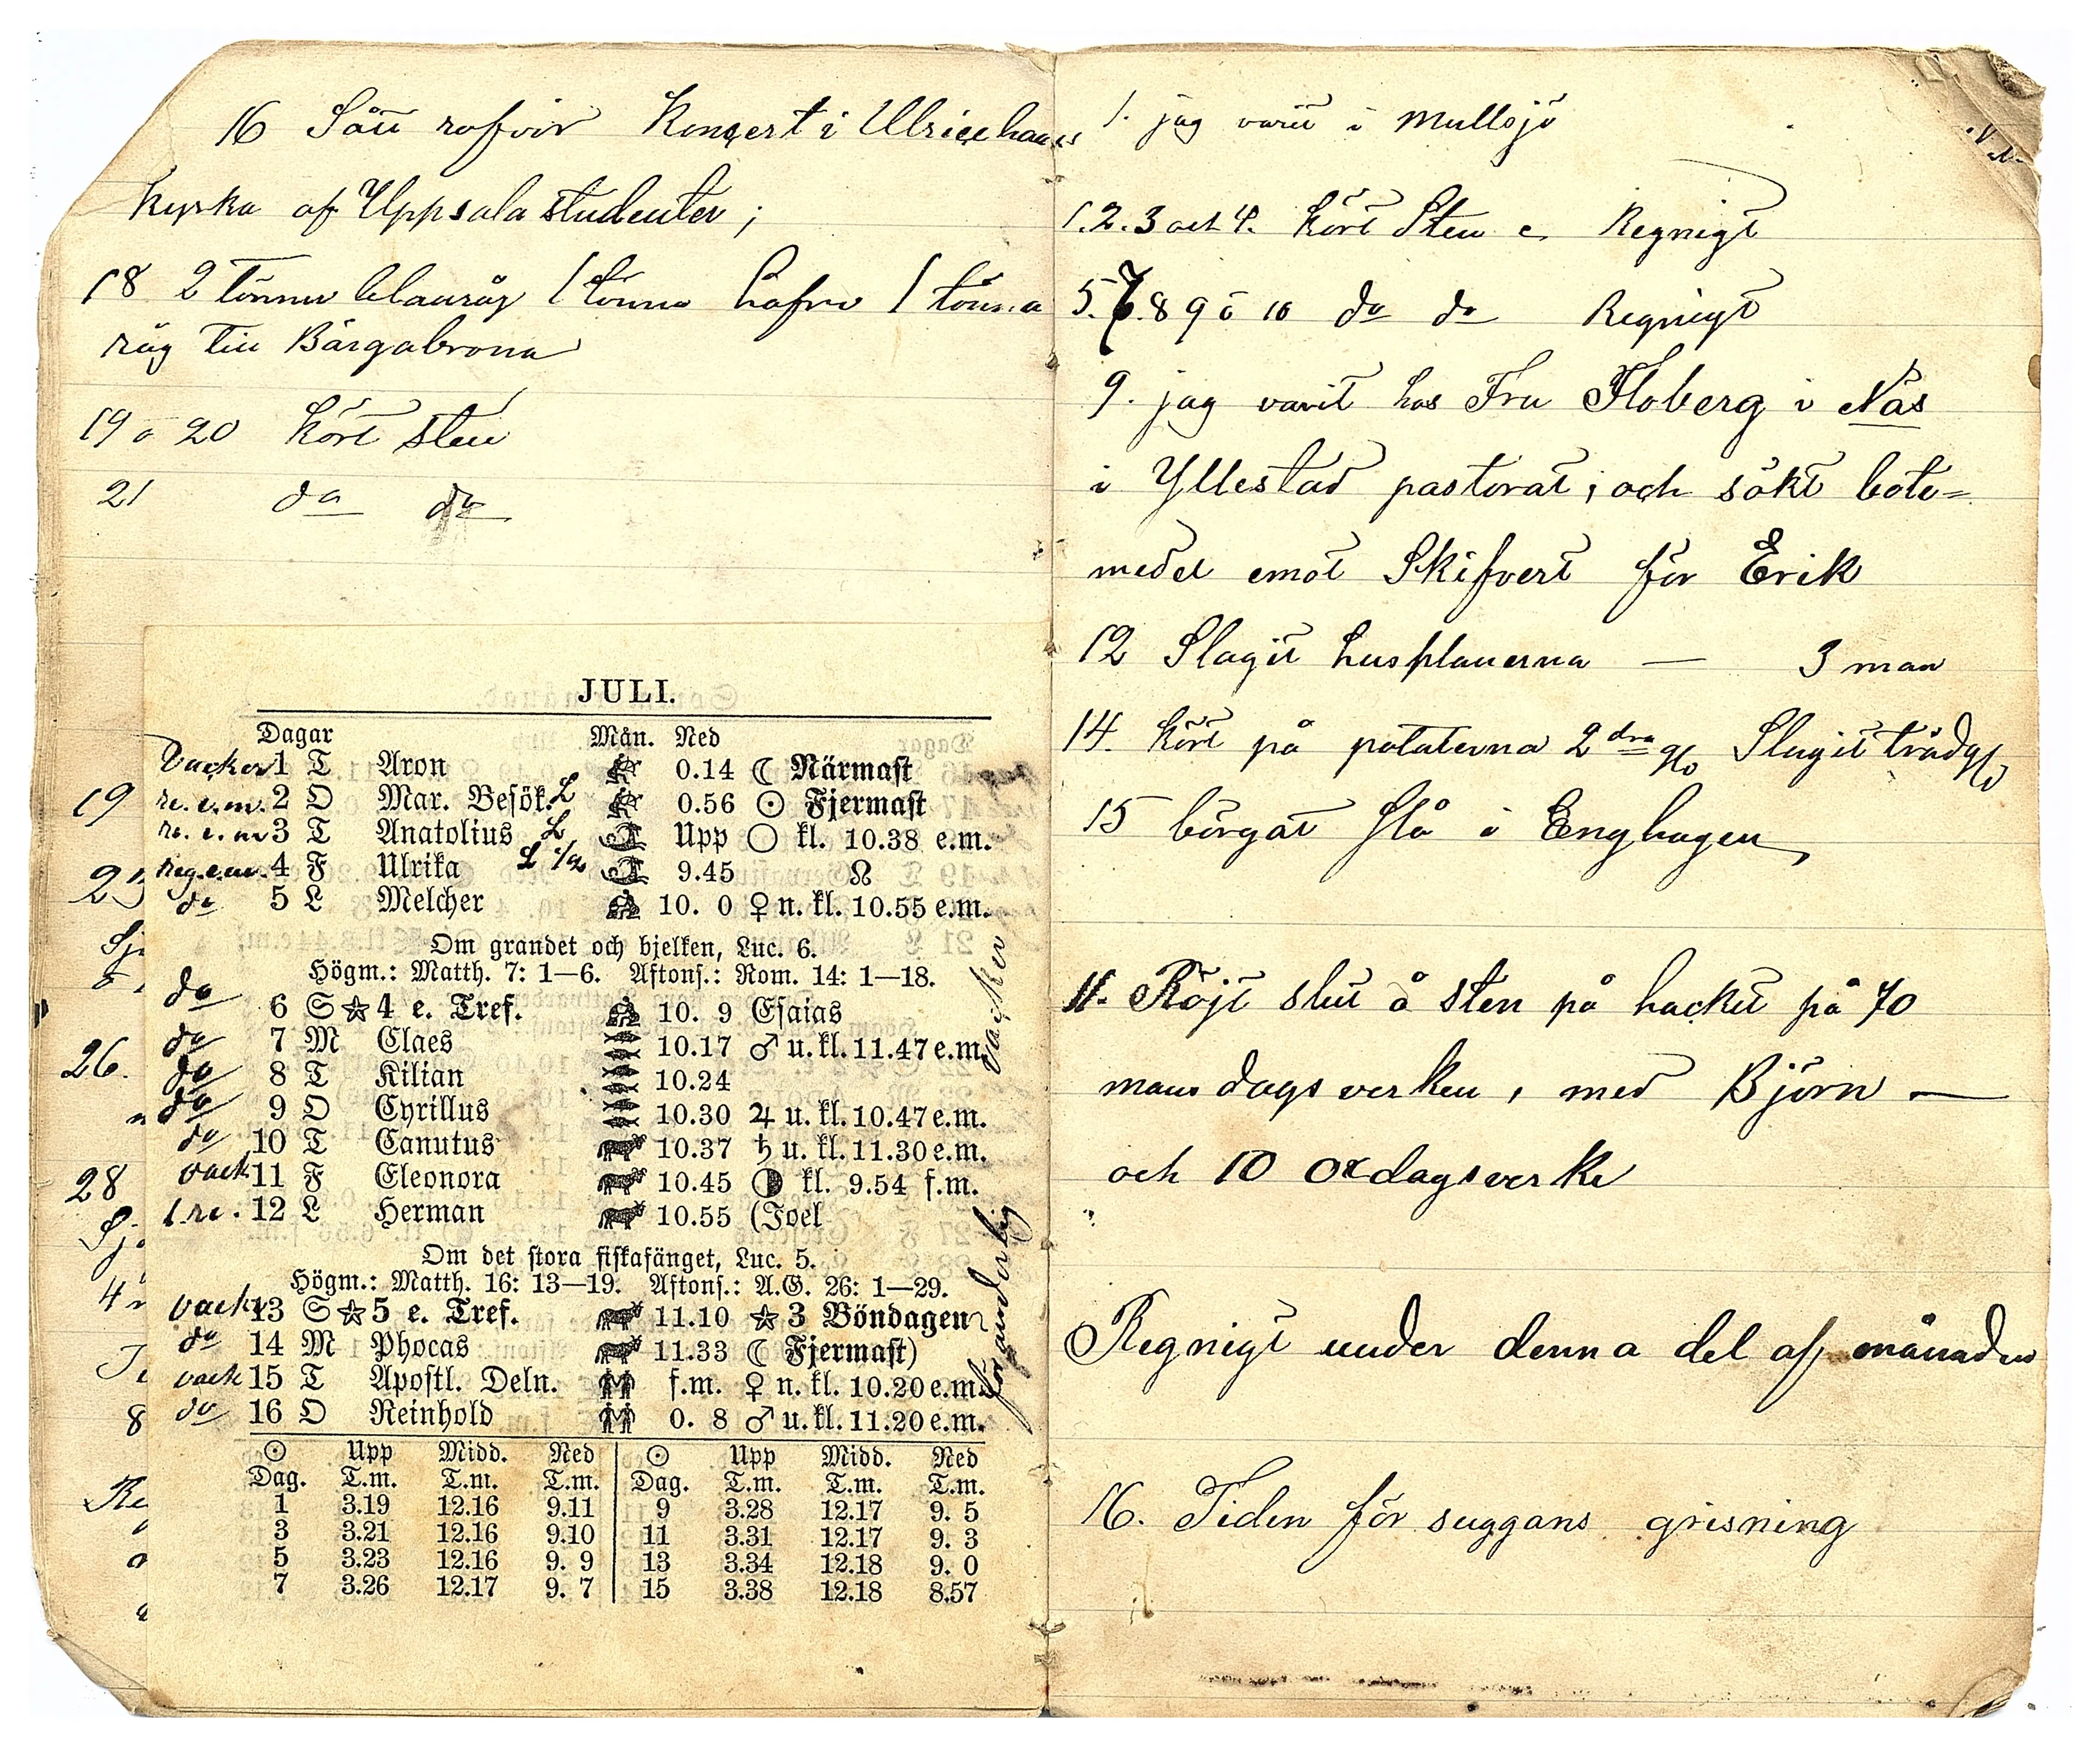 16 Sått rofvor Konsert i Ulricehamns
kyrka af Uppsala studenter;
18 2 tönnor blandråg 1 tönna hafre 1 tönna
råg till Bärgabrona
19 o 20 kört sten
21 do do
19
25
26.
28
8
JULI.
Dagar Mån. Ned
Vacker 1 T Aron 0.14 ☾ Närmast
re. e.m. 2 O Mar. Besök. L 0.56 ☉ Fjermast
re. e. m 3 T Anatolius L Upp ○ kl. 10.38 e.m.
reg. e.m. 4 F Ulrika L 9.45 ☊
do 5 L Melcher 10. 0 ♀ n. kl. 10.55 e.m.
Om grandet och bjelken, Luc. 6.
Högm.: Matth. 7: 1—6. Aftons.: Rom. 14: 1—18.
do 6 S ☆ 4 e. Tref. 10. 9 Esaias
do 7 M Claes 10.17 ♂ u. kl. 11.47 e.m.
do 8 T Kilian 10.24
do 9 O Cyrillus 10.30 ♃ u. kl. 10.47 e.m.
do 10 T Canutus 10.37 ♄ u. kl. 11.30 e.m.
vack 11 F Eleonora 10.45 ◑ kl. 9.54 f.m.
l. re. 12 L Herman 10.55 (Joel
Om det stora fiskafänget, Luc. 5.
Högm.: Matth. 16: 13—19. Aftons.: A.G. 26: 1—29.
vackr 13 S ☆ 5 e. Tref. 11.10 ☆ 3 Böndagen
do 14 M Phocas 11.33 ☾ Fjermast)
vack 15 T Apostl. Deln. f.m. ♀ n. kl. 10.20 e.m.
do 16 O Reinhold 0. 8 ♂ u. kl. 11.20 e.m.
vacker
föränderlig
☉ Upp Midd. Ned ☉ Upp Midd. Ned
Dag. T.m. T.m. T.m. Dag. T.m. T.m. T.m.
1 3.19 12.16 9.11 9 3.28 12.17 9. 5
3 3.21 12.16 9.10 11 3.31 12.17 9. 3
5 3.23 12.16 9. 9 13 3.34 12.18 9. 0
7 3.26 12.17 9. 7 15 3.38 12.18 8.57
1. jag varit i Mullsjö
1.2.3 och 4. kört Sten Regnigt
5.7.8 9 o 10 do do Regnigt
9. jag varit hos Fru Floberg i Näs
i Yllestad pastorat; och sökt bote=
medel emot Skifvert för Erik
12 Slagit husplanerna — 3 man
14. kört på potaterna 2dra g/o Slagit trädg/d
15 bärgat slå i Enghagen
11. Röjt slut å sten på hackit på 70
mans dagsverken, med Björn —
och 10 oxdagsverke
Regnigt under denna del af månaden
16. Tiden för suggans grisning